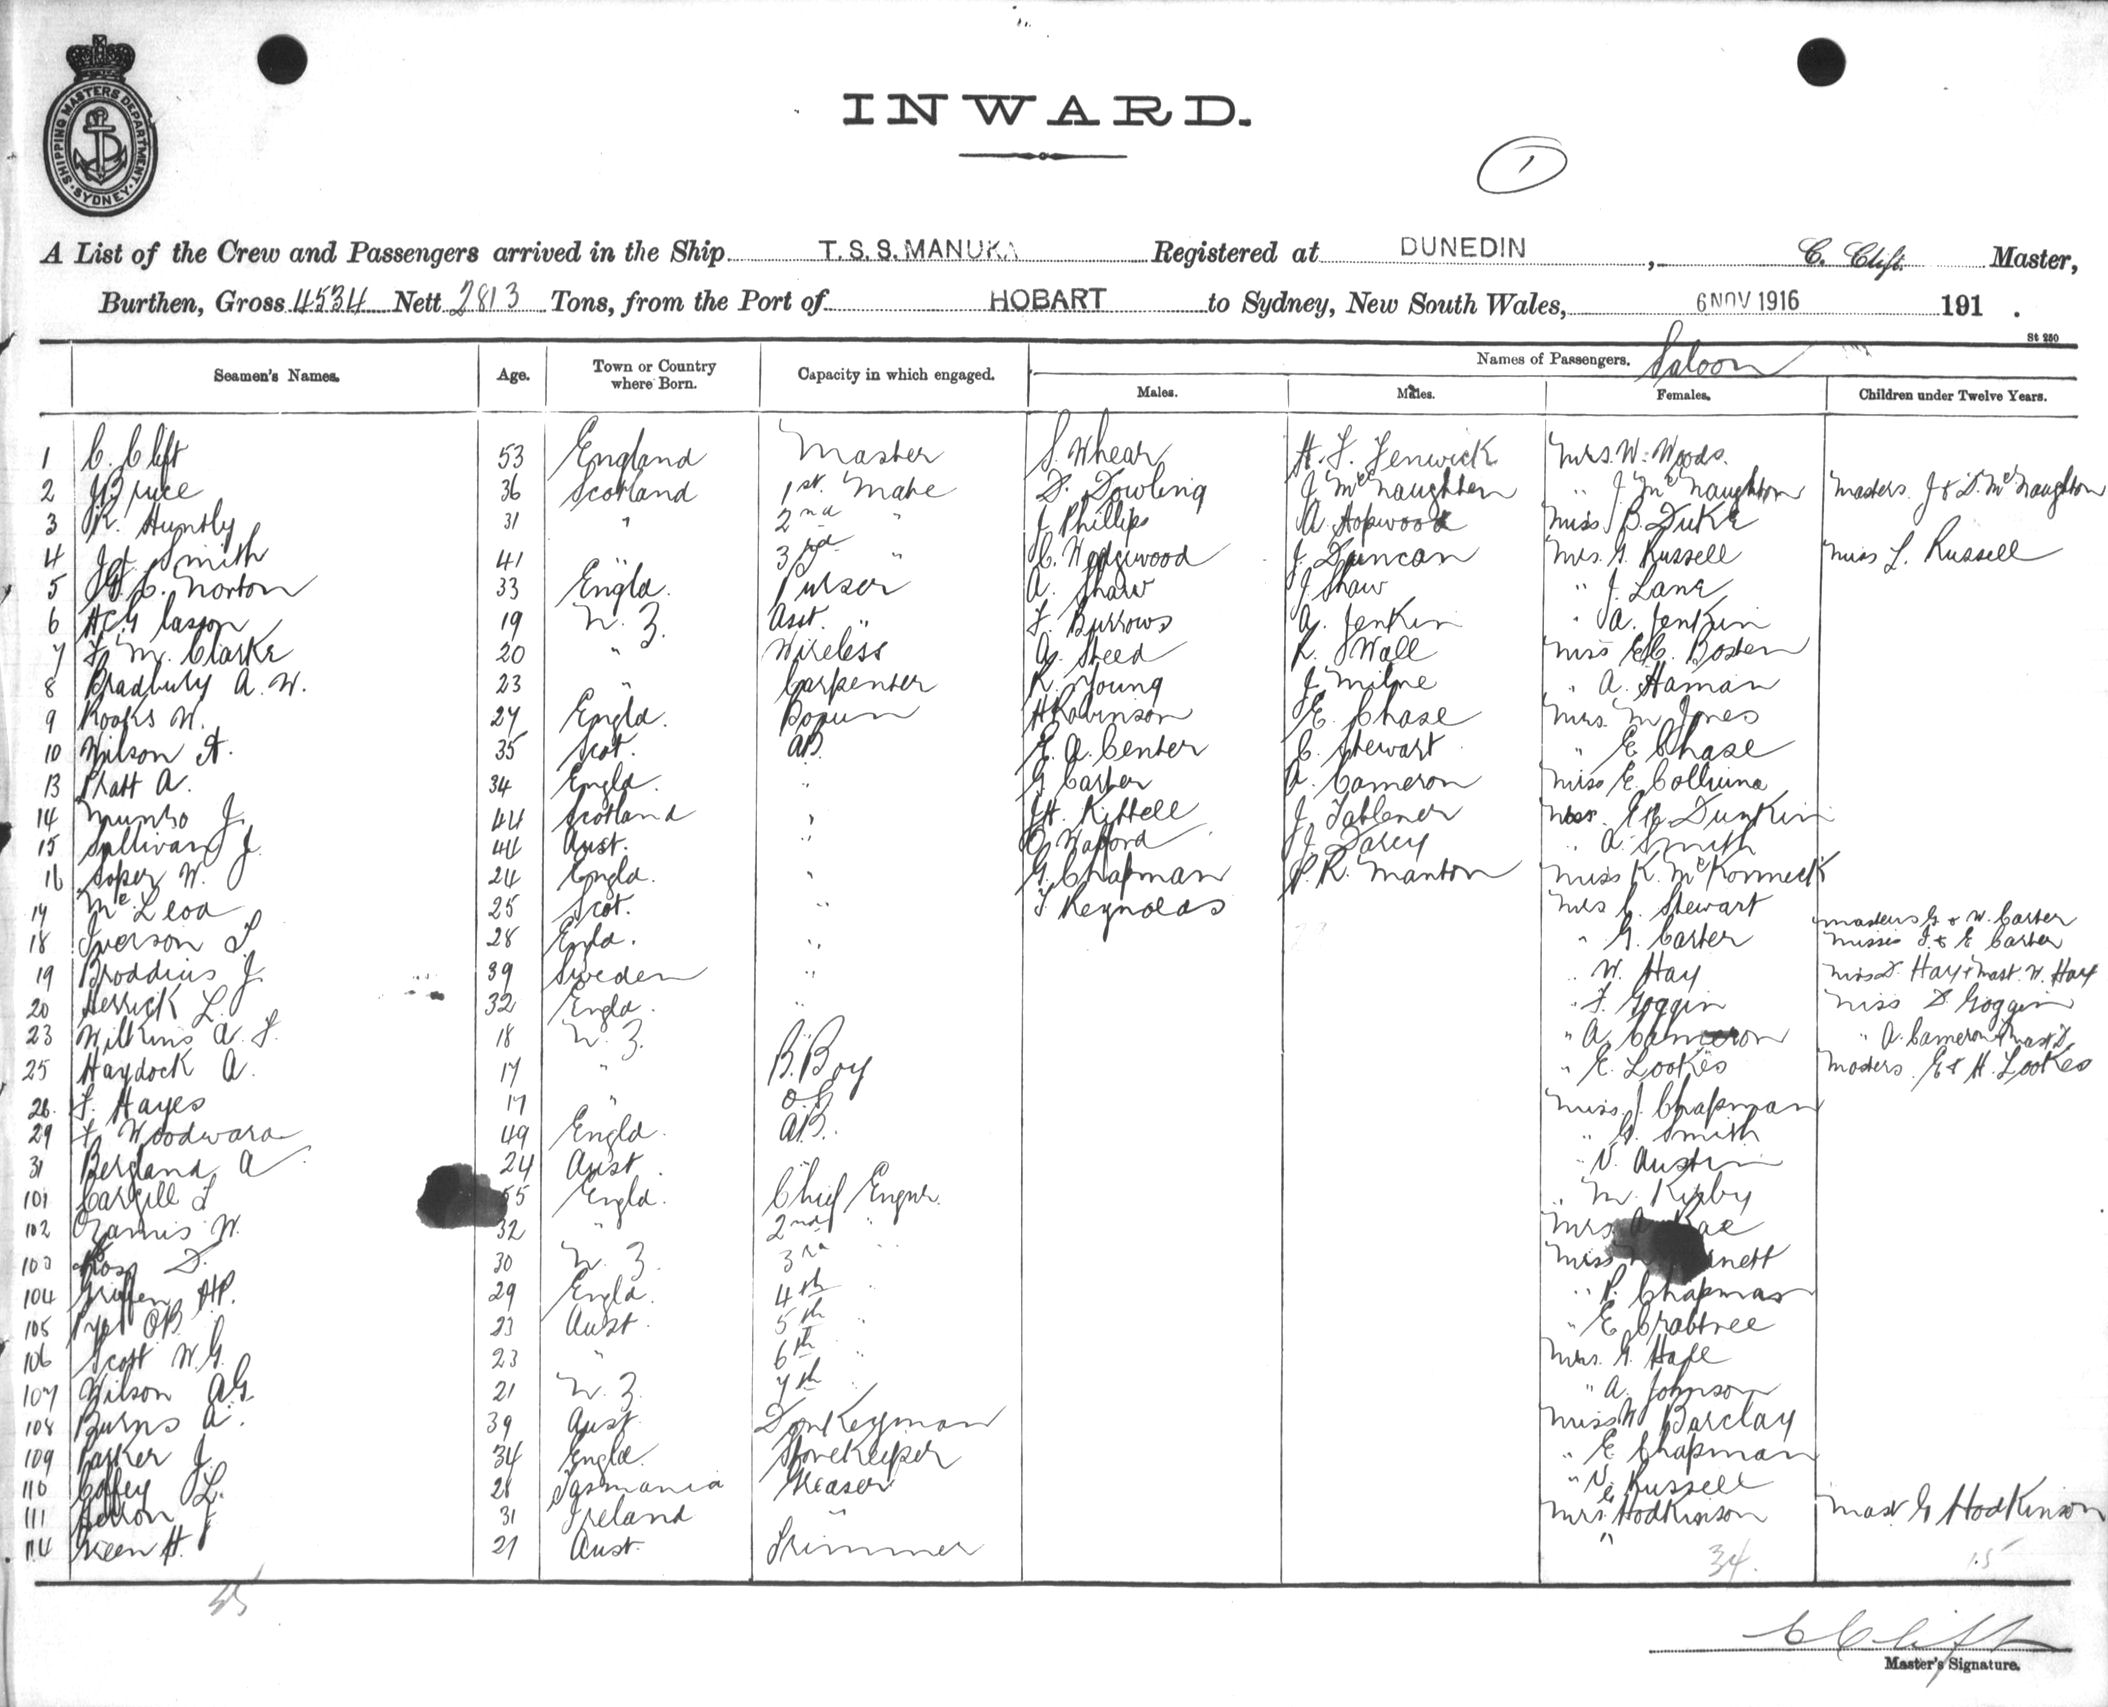 SHIPPING MASTERS DEPARTMENT
SYDNEY
INWARD.
1
A List of the Crew and Passengers arrived in the Ship T.S.S. MANUKA Registered at DUNEDIN, C. Clift Master,
Burthen, Gross 4534 Nett 2813 Tons, from the Port of HOBART to Sydney, New South Wales, 6 NOV 1916 191 .
St 250
Seamen's Names. Age. Town or Country where Born. Capacity in which engaged. Names of Passengers. Saloon
Males. Males. Females. Children under Twelve Years.
1 C. Clift 53 England Master S. Whear H. F. Fenwick Mrs. W. Woods.
2 J Bruce 36 Scotland 1st. Mate D. Dowling J McNaughton " J. McNaughton Masters. J & D. McNaughton
3 R. Huntly 31 " 2nd " J Phillips A. Hopwood Miss B. Duke
4 Smith 41 " 3rd " C. Wedgwood J. Duncan Mrs. G. Russell Miss L. Russell
5 C. Norton 33 Engld. Purser A. Shaw J Shaw " J. Lane
6 Casson 19 N. Z. Asst. " F. Burrows A. Jenkin " A. Jenkin
7 F. M. Clarke 20 " Wireless A. Steed R. Wall Miss Bosten
8 Bradbury A. W. 23 " Carpenter R. Young J. Milne " A. Haman
9 Rooks W. 27 Engld. Bosun H Robinson E. Chase Mrs. M Jones
10 Wilson A. 35 Scot. AB. E. A. Center C. Stewart " E Chase
13 Pratt A. 34 Engld. " G. Carter A. Cameron Miss E.
14 Munro J. 44 Scotland " J H. Kittell J. Dunkin
15 Sullivan J. 44 Aust. " Wafford J. Darcy " A. Smith
16 Soper W. 24 Engld. " G. Chapman P. R. Manton Miss K. McKormick
17 McLeod 25 Scot. " T Reynolds Mrs C. Stewart
18 Iverson T 28 Engld. " " G. Carter Masters G & W. Carter
Misses J. & E Carter
19 Broddius J. 39 Sweden " " W. Hay Miss D. Hay & Mast. W. Hay
20 Herrick L. 32 Engld. " " F. Goggin Miss D Goggin
23 Wilkins A. F. 18 N. Z. " A. Cameron " A. Cameron & Mast D.
25 Haydock A. 17 " B. Boy " E. Lookes Masters. E & H. Lookes
28. F. Hayes 17 " O.S. Miss J. Chapman
29 Woodward 49 Engld. AB. " G. Smith
31 Bergland A 24 Aust. " V. Austin
101 Cargill J 55 Engld. Chief Engnr. " M. Kirby
102 W. 32 " 2nd " Mrs. A Rae
103 Ross D. 30 N. Z. 3rd " Miss
104 Griffen 29 Engld. 4th " " P. Chapman
105 Pyer 23 Aust. 5th " " E Crabtree
106 Scott W. G. 23 " 6th " Mrs. G. Hale
107 Wilson A G. 21 N. Z. 7th " " A. Johnson
108 Burns A. 39 Aust Donkeyman Miss W Barclay
109 Parker J. 34 Engld. Storekeeper " E. Chapman
110 Coffey L. 28 Tasmania Greaser " V. Russell
111 Herron J 31 Ireland " Mrs. Hodkinson Mast G Hodkinson
114 Green H. 21 Aust. Trimmer "
34. 15
C Clift
Master's Signature.